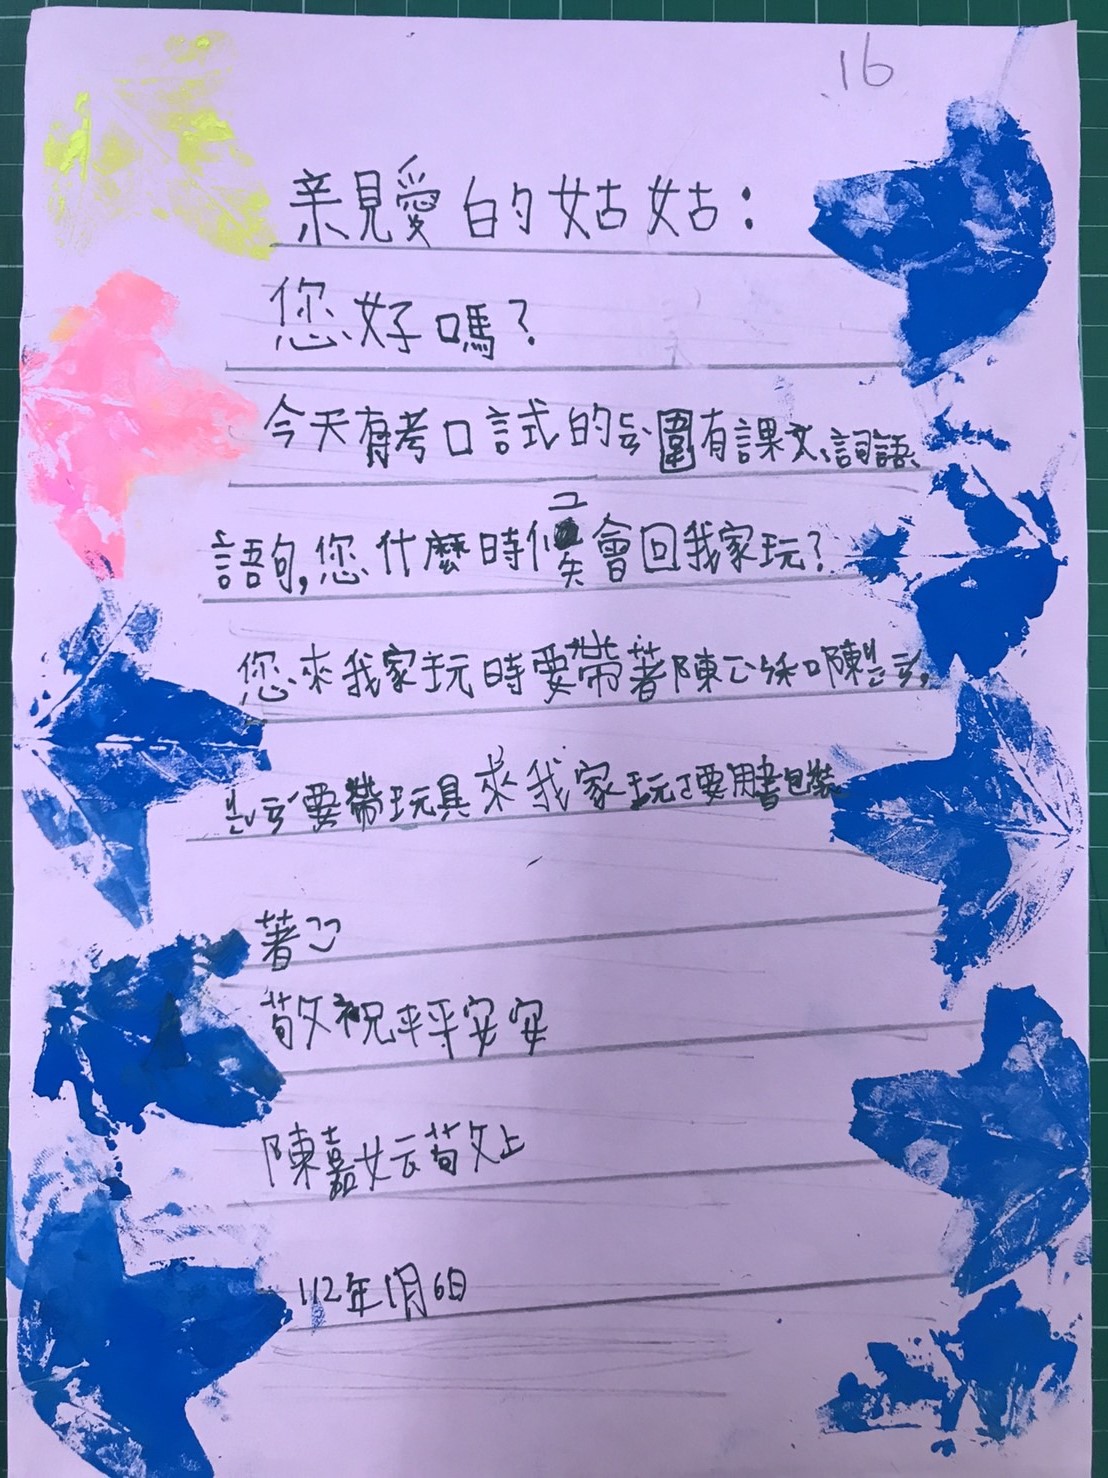 16
親愛的姑姑：
您好嗎？
今天有考口試式的ㄈㄢ圍有課文、詞語、
語句,您什麼時候會回我家玩？
您來我家玩時要帶著陳
要帶玩具來我家玩要用書包裝
著
敬祝平平安安
陳嘉妘敬上
112年1月6日